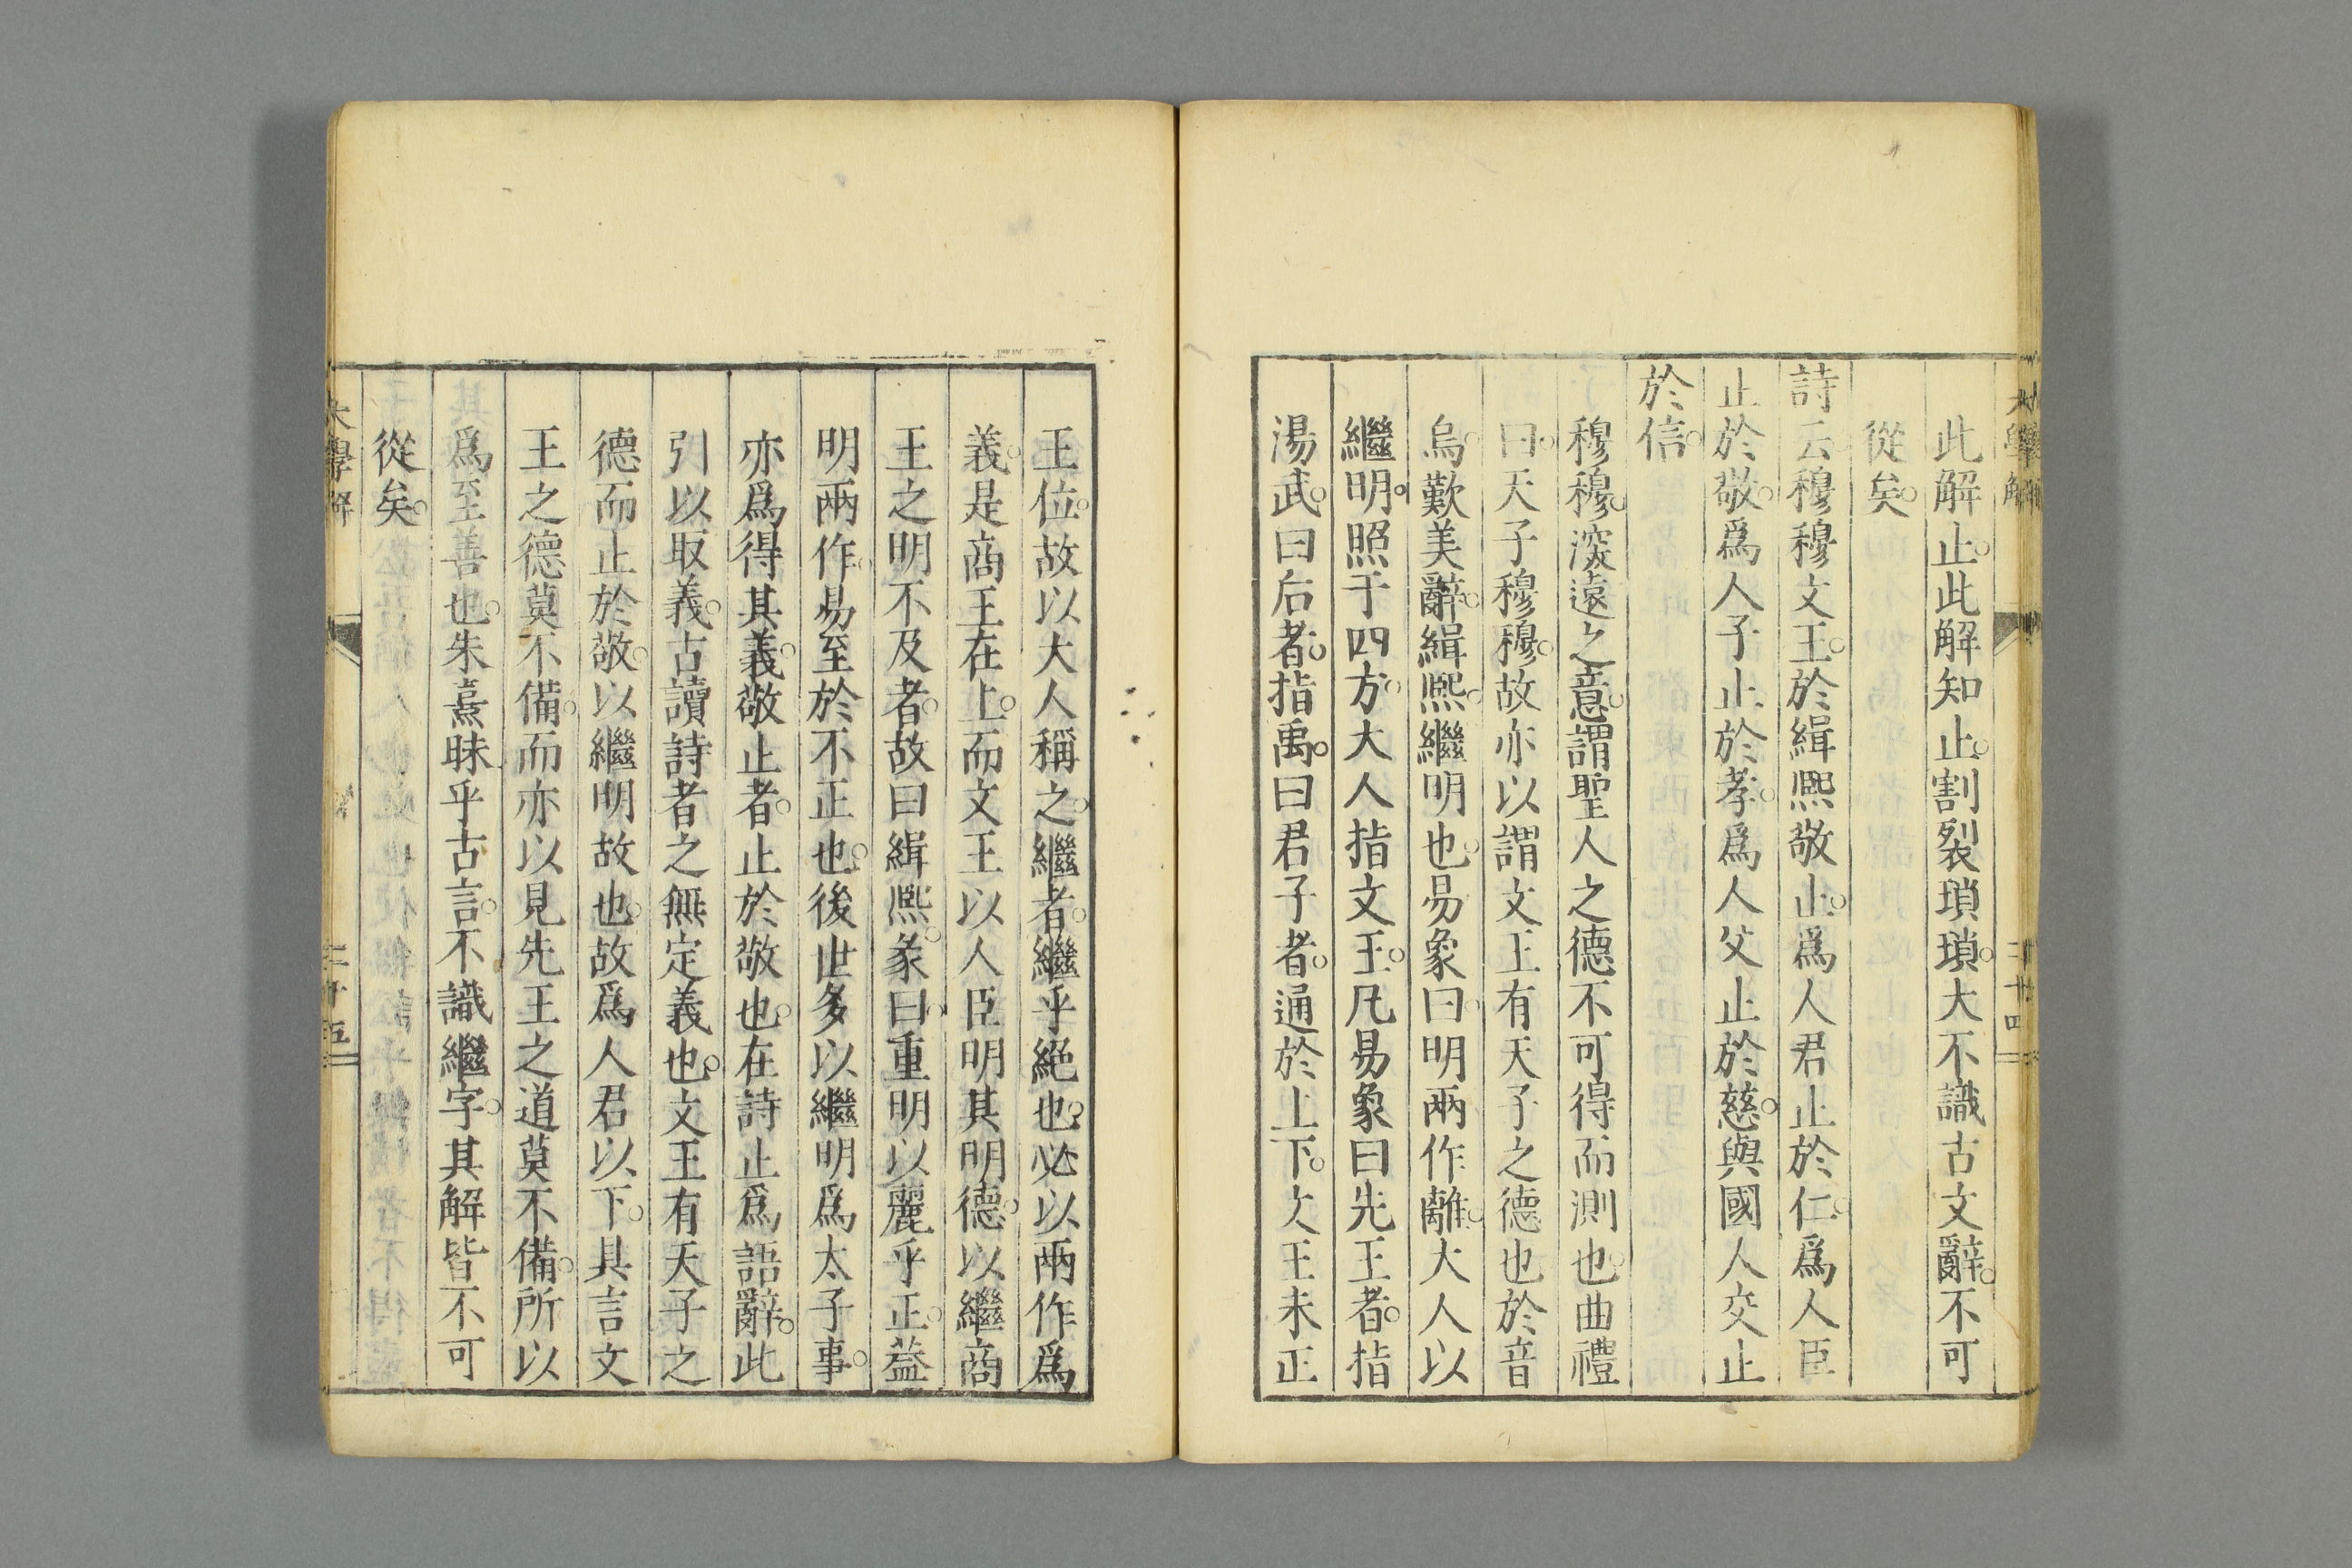 此解止。此解知止。割裂瑣瑣。大不識古文辭。不可
從矣。
詩云穆穆文王。於緝熈敬止。爲人君止於仁。爲人臣
止於敬。爲人子止於孝。爲人父止於慈。與國人交止
於信。
穆穆。深遠之意。謂聖人之德不可得而測也。曲禮
曰。天子穆穆。故亦以謂文王有天子之德也於音
烏。歎美辭。緝熈。繼明也。易象曰。明兩作離。大人以
繼明。照于四方。大人指文王。凡易象曰先王者。指
湯武。曰后者。指禹。曰君子者。通於上下。文王未正
王位。故以大人稱之。繼者。繼乎絕也。必以兩作爲
義。是商王在上。而文王以人臣明其明德。以繼商
王之明不及者。故曰緝熈。彖曰。重明以麗乎正。蓋
明兩作。易至於不正也。後世多以繼明爲太子事。
亦爲得其義。敬止者。止於敬也。在詩止爲語辭。此
引以取義。古讀詩者之無定義也。文王有天子之
德而止於敬。以繼明故也。故爲人君以下。具言文
王之德莫不備。而亦以見先王之道莫不備。所以
爲至善也。朱熹昧乎古言。不識繼字。其解皆不可
從矣。
大學解
二十四
大學解
二十五